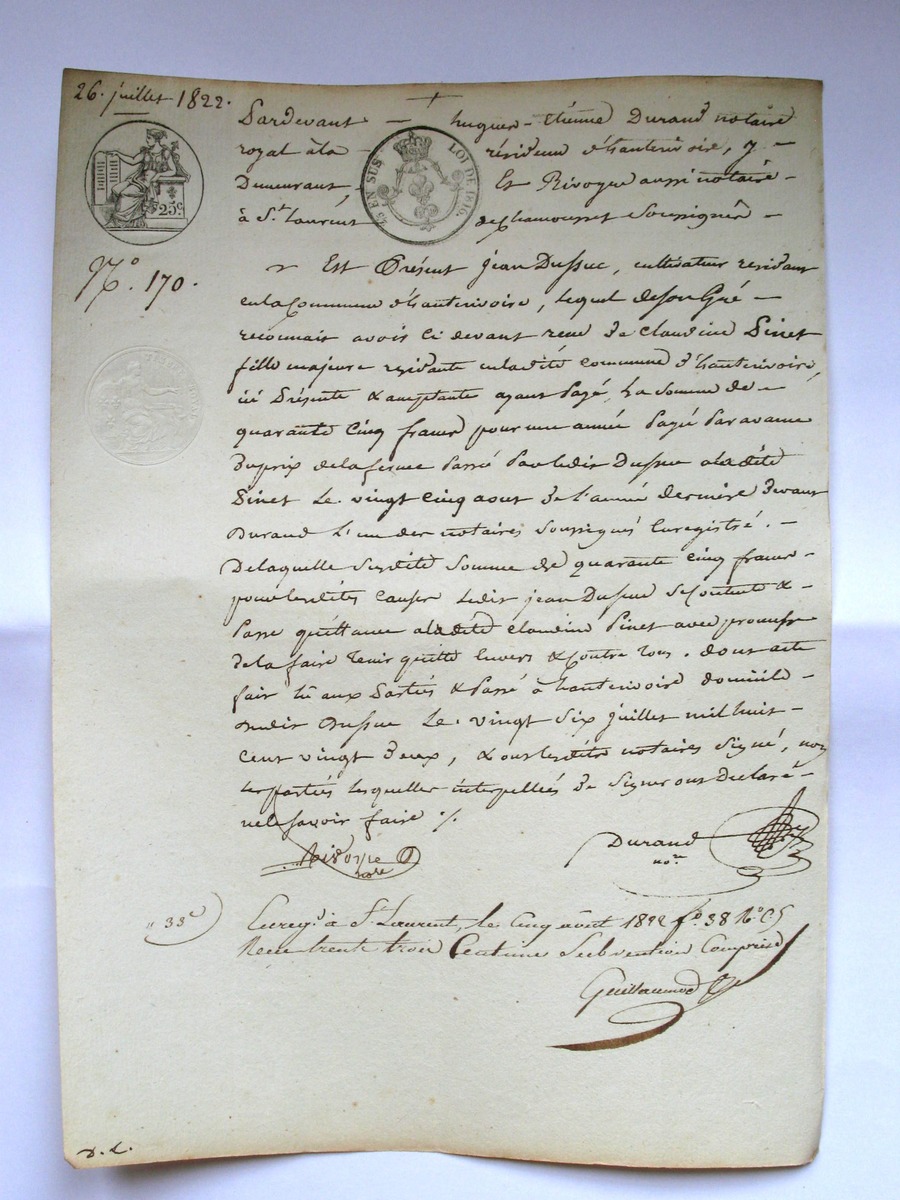 26. juillet 1822.
Pardevant – hugues-étienne Durand notaire
royal à la résidence d'hauterivoire, y –
Demeurant, Et Rivoyre aussi notaire –
à St. Laurent de Chamousset soussignés –
25c.
¼ EN SUS LOI DE 1816.
N.o 170.
Est Présent jean Dussuc, cultivateur residant
en la Commune d'hauterivoire, lequel de son Gré –
reconnait avoir ci devant reçu de Claudine Pinet
fille majeure residante en ladite commune d'hauterivoire,
ici Présente & acceptante ayant Payé, La somme de –
quarante Cinq francs pour une année Payée Par avance
du prix de la ferme Passé Par ledit Dussuc a ladite
Pinet Le vingt cinq aout de l'année derniere devant
Durand L'un des notaires soussignés Enregistré. –
De laquelle susdite somme de quarante cinq francs –
pour lesdites causes Ledit jean Dussuc se Contente & –
Passe quittance a ladite claudine Pinet avec promesse
de la faire tenir quitte Envers & Contre tous. dont acte
fait lû aux Parties & Passé à hauterivoire domicile –
dudit Dussuc Le vingt six juillet mil huit –
cent vingt deux, & ont lesdits notaires signé, non
les parties lesquelles interpellées de signer ont Declaré –
ne le savoir faire ·/.
Rivoyre
nore
Durand
nore
" 33c
Enregé à St Laurent, le Cinq août 1822 fo. 38 Ro. C5
Recu trente trois Centime Subvention Comprise
Guillaumod
D. L.